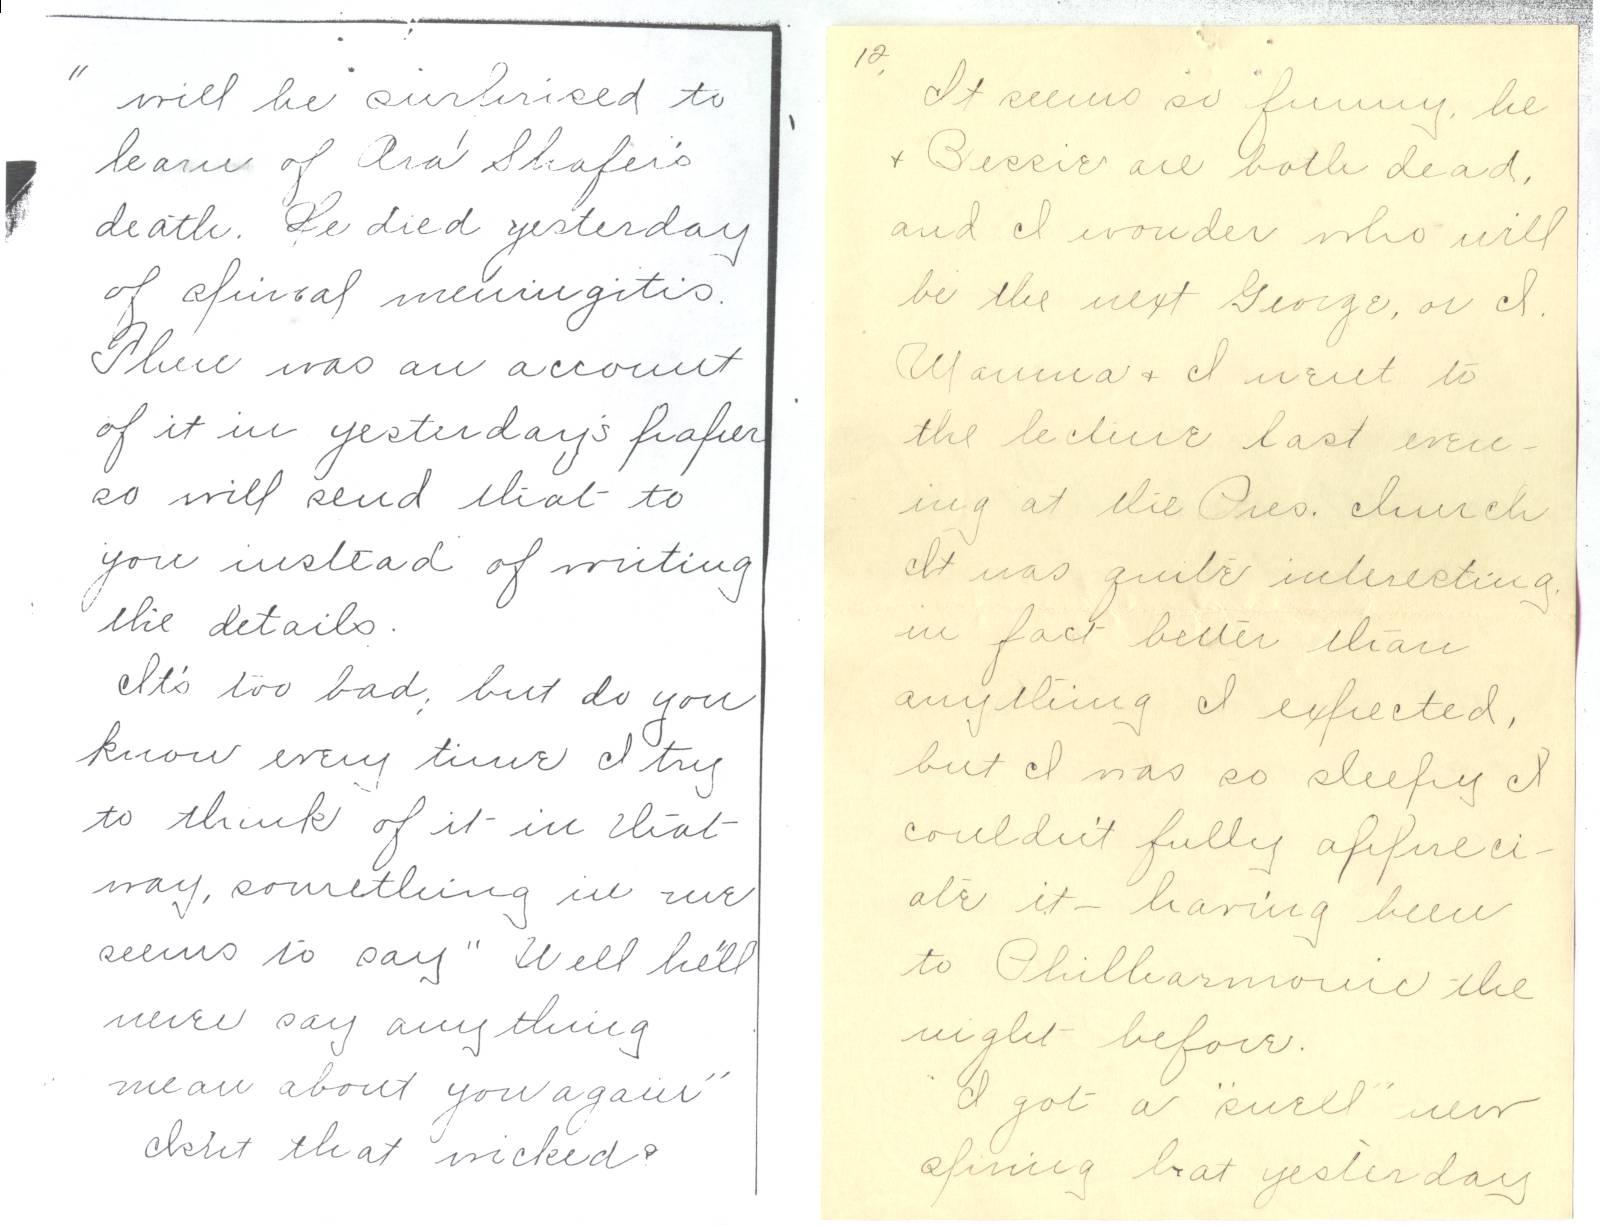 11
will be surprised to
learn of Ara' Shafer's
death. He died yesterday
of spinal meningitis.
There was an account
of it in yesterday's paper
so will send that to
you instead of writing
the details.
It's too bad, but do you
know every time I try
to think of it in that
way, something in me
seems to say "Well he'll
never say anything
mean about you again"
Isn't that wicked?
12.
It seems so funny, he
+ Bessie are both dead,
and I wonder who will
be the next George, or I.
Mamma + I went to
the lecture last even-
ing at the Pres. church
It was quite interesting,
in fact better than
anything I expected,
but I was so sleepy I
couldn't fully appreci-
ate it - having been
to Philharmonic the
night before.
I got a "swell" new
spring hat yesterday